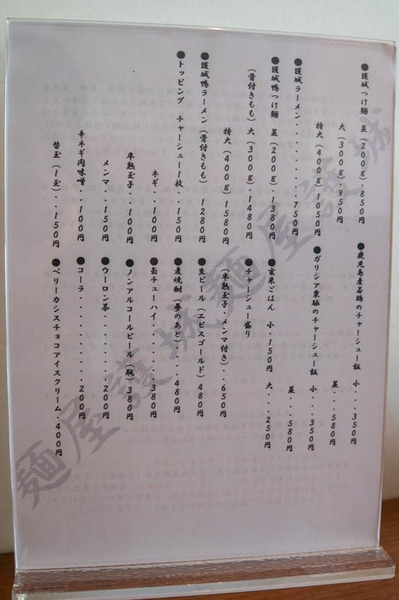 ●護城つけ麺 並(200g)・850円
大(300g)・950円
特大(400g)1050円
●護城ラーメン・・・・・・・・750円
●護城鴨つけ麺 並(200g)・1380円
(骨付きもも) 大(300g)・1480円
特大(400g)1580円
●護城鴨ラーメン(骨付きもも) 1280円
●トッピング チャーシュー1枚・・150円
ネギ・・・100円
半熟玉子・・・100円
メンマ・・・150円
辛ネギ肉味噌・・・100円
替玉(1玉)・・・150円
●鹿児島産若鶏のチャーシュー飯 小・・・350円
並・・・580円
●ガリシア栗豚のチャーシュー飯 小・・・350円
並・・・580円
●玄米ごはん 小・150円 大・・250円
●チャーシュー盛り
(半熟玉子・メンマ付き)・・650円
●生ビール(エビスゴールド)480円
●麦焼酎(夢のあと)・・・・480円
●缶チューハイ・・・・・・・480円
●ノンアルコールビール(瓶)380円
●ウーロン茶・・・・・・・・200円
●コーラ・・・・・・・・・・200円
●ベリーカシスチョコアイスクリーム・400円
麺屋護城麺屋護城